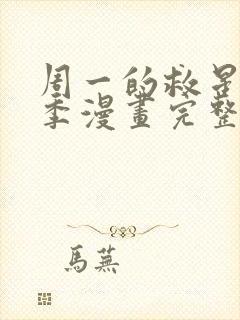 周一的救星
季漫畫完整
馬蕪